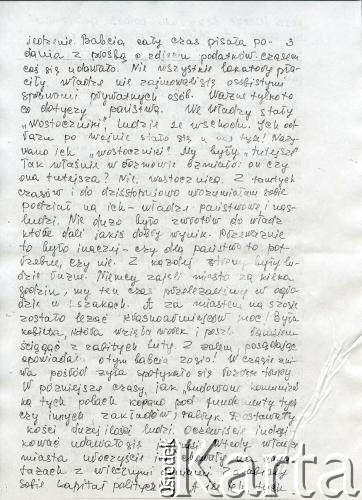 jedzenie. Babcia cały czas pisała po- 3
dania z prośbą o zdjęciu podatków. Czasem
coś się udawało. Nie wszystkie lokatory pła-
ciły. Władze nie zajmowali się osobistymi
sprawami prywatnych osób. Ważne tylko to
co dotyczy państwa. We władzy stały
"wostoczniki" ludzie ze wschodu. Ich od
razu po wojnie stało się u nas tylu! Nazy-
wano ich "wostoczniki" My byli "tutejsze"
Tak właśnie w rozmowie brzmiało: on czy
ona tutejsza? Nie, wostocznica. Z tamtych
czasów i do dzisiejszego rozumiałam sobie
podział na ich - władze państwowe i nas -
ludzi. Nie dużo było zwrotów do władz
które dali jakiś dobry wynik.
to było inaczej - czy dla państwa to pot-
rzebne, czy nie. Z każdej strony byli lu-
dzie różne. Niemcy zajęli miasto za kilka
godzin, my ten czas przeleżeliśmy w ogro-
dzie w krzakach. A za miastem na szosie
zostało leżać krasnoarmiejców moc! Była
kobieta, która wzięła worek i poszła
ściągać z zabitych buty. Z żalem,
opowiadała o tym babcia Zosia! W czasie żni-
wa pośród żyta spotykało się trupy.
W późniejsze czasy, jak "budowano komunizm"
na tych polach kopano pod fundamenty
czy innych zakładów, fabryk. Dostawały
kości dużej ilości ludzi. Oczywiście
kować udawało się władze
miasta uroczyście na cmen-
tarzach z wiecznymi
sobie kapitał polityczny
ośrodek
Karta